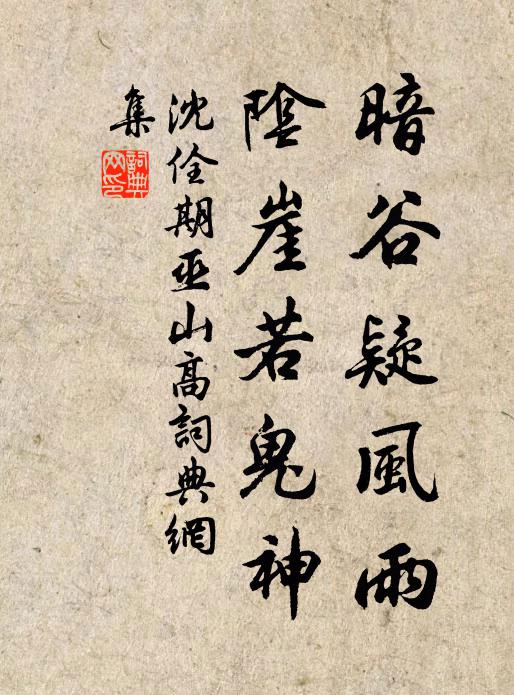 暗谷疑風雨
陰崖若鬼神
沈佺期巫山高詞典網
集
詞典
网印